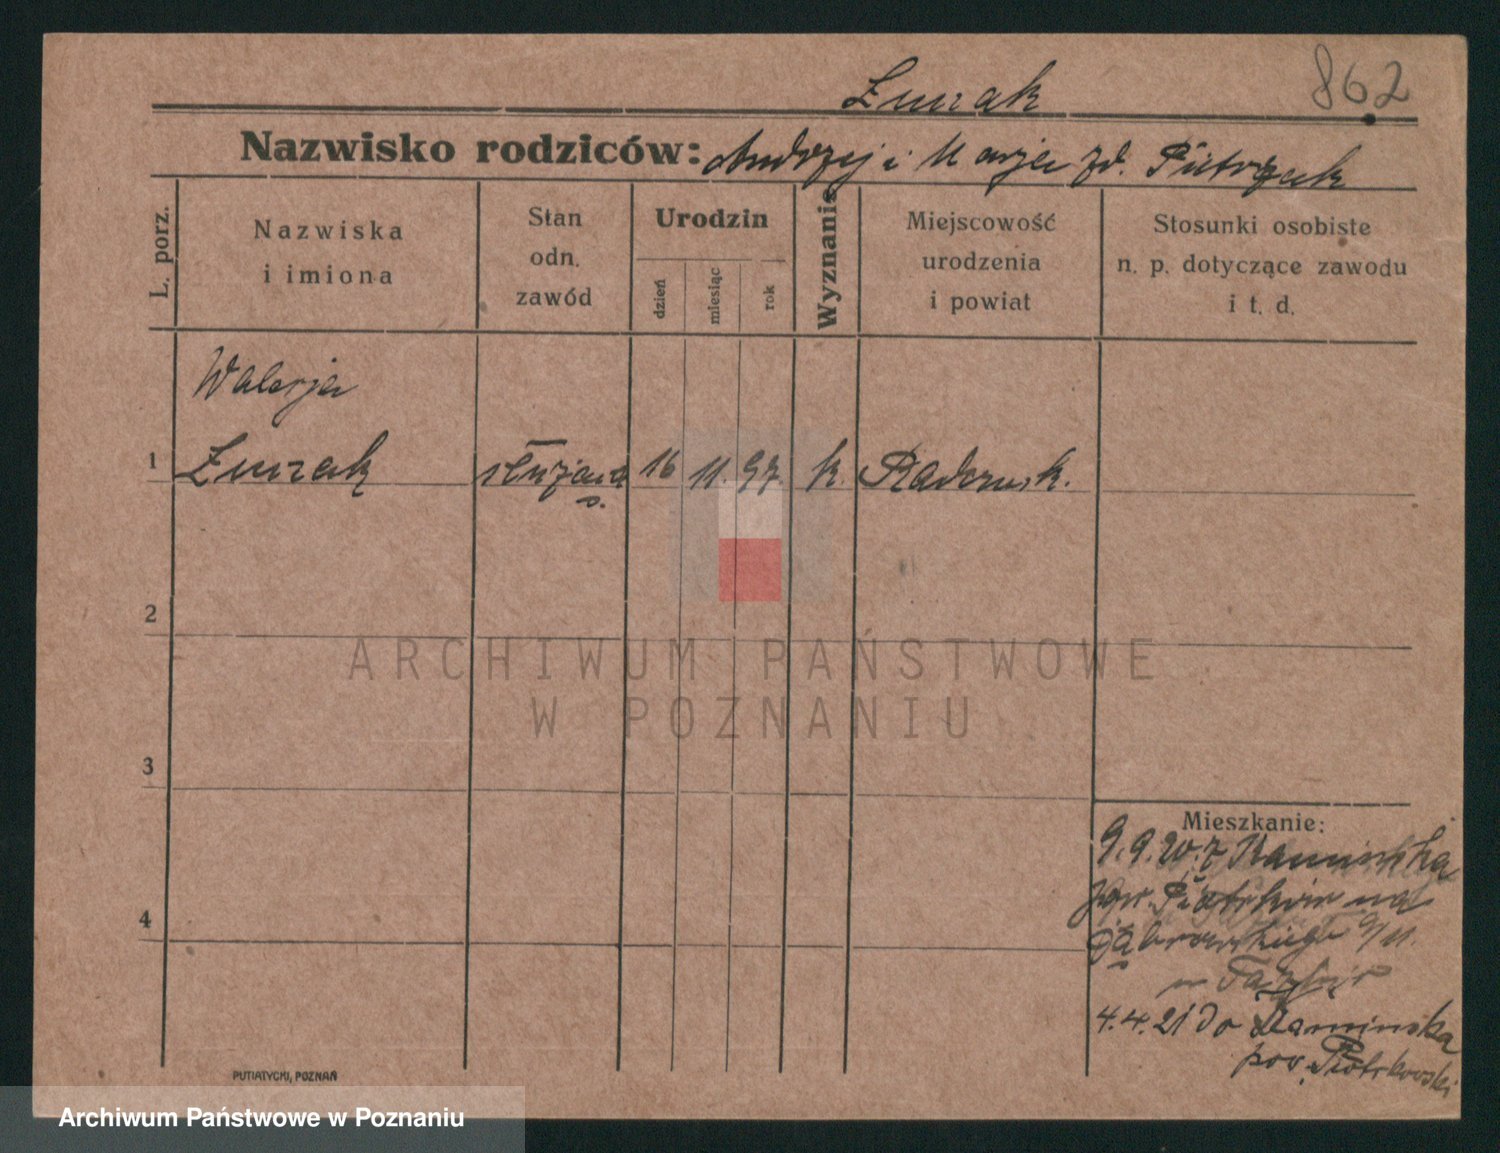 Żurrak 862
Nazwisko rodziców: Andrzej i Marja zd. Pietrzak
L. porz.
Nazwiska
i imiona
Stan
odn.
zawód
Urodzin
dzień
miesiąc
rok
Wyznanie
Miejscowość
urodzenia
i powiat
Stosunki osobiste
n. p. dotyczące zawodu
i t. d.
Walerja
1 służąca 16 11. 97. k. Radomsk.
2
3
4
Mieszkanie:
9.9.20. z Kamińska
Piotrków na
Dąbrowskiego 9/11.
4.4.21 do Kamińska
pow. Piotrkowski
PUTIATYCKI, POZNAŃ
ARCHIWUM PAŃSTWOWE
W POZNANIU
Archiwum Państwowe w Poznaniu